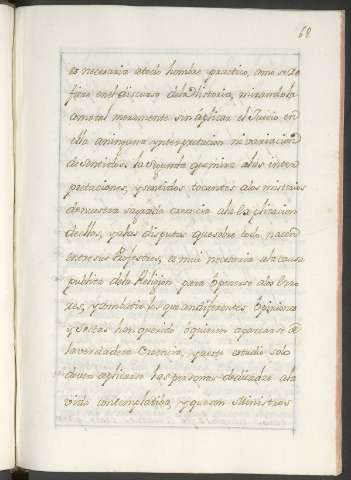 68
es necesaria atodo hombre practico, como se re
fiere enel discurso dela Historia, mirandola
como tal meramente sin aplicar el Juicio en
ella aninguna ynterpretacion ni variacion
de sentidos. la Segunda que mira alas inter
pretaciones, y sentidos tocantes alos misterios
de nuestra sagrada creencia ala Explicacion
de ellos, y alas disputas que sobre todo nacen
entre sus Profesores, es mui necesaria ala causa
publica dela Religion para Oponerse alos Erro
res, y combatir los que en diferentes Opiniones
y Sectas han querido o quieren apartarse de
la verdadera Creencia, y aeste estudio solo
deven aplicarse las personas dedicadas ala
vida contemplativa, y que son Ministros